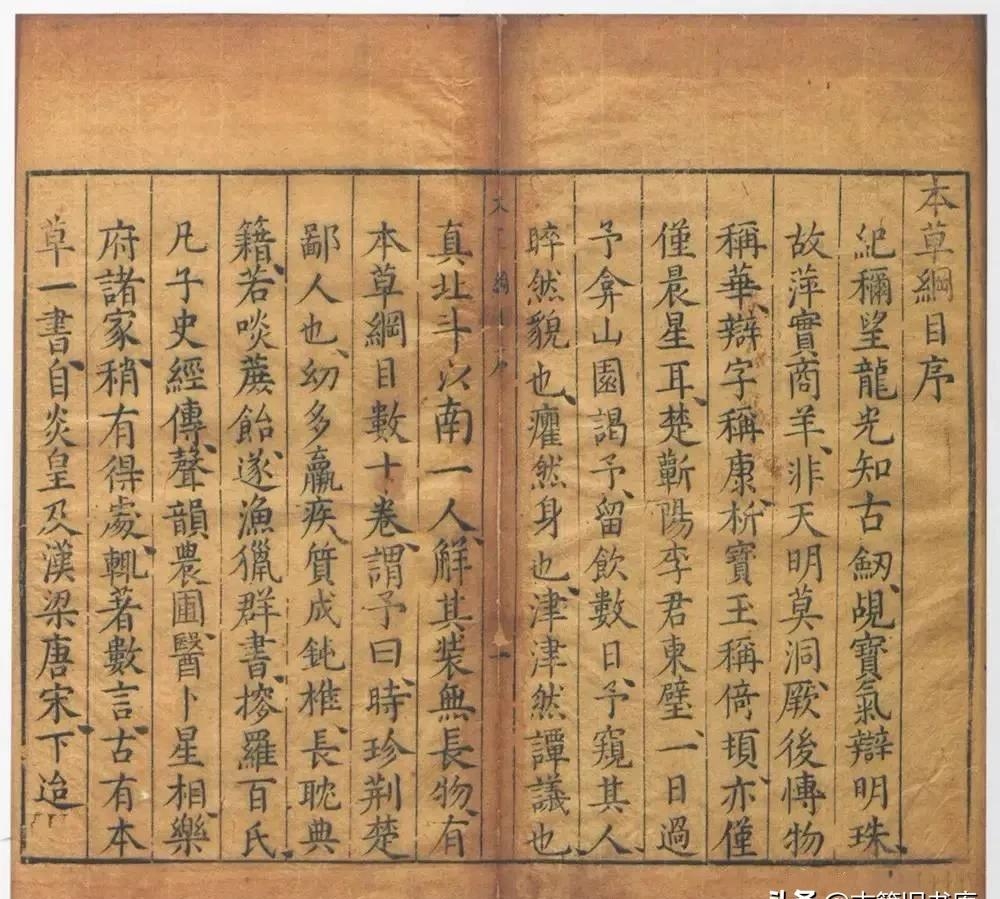 本草綱目序
紀稱望龍光知古劒、覘寶氣辯明珠、
故萍實商羊、非天明莫洞、厥後愽物
稱華、辯字稱康、析寶玉稱倚頓、亦僅
僅晨星耳、楚蘄陽李君東璧、一日過
予弇山園謁予、留飲數日、予窺其人、
睟然貌也、癯然身也、津津然譚議也、
真北斗以南一人、觧其装無長物、有
本草綱目數十卷、謂予曰、時珍荆楚
鄙人也、幼多羸疾、質成鈍椎、長耽典
籍、若啖蔗飴、遂漁獵群書、搜羅百氏、
凡子史經傳、聲韻農圃、醫卜星相、樂
府諸家、稍有得處、輒著數言、古有本
草一書、自炎皇及漢梁唐宋、下迨